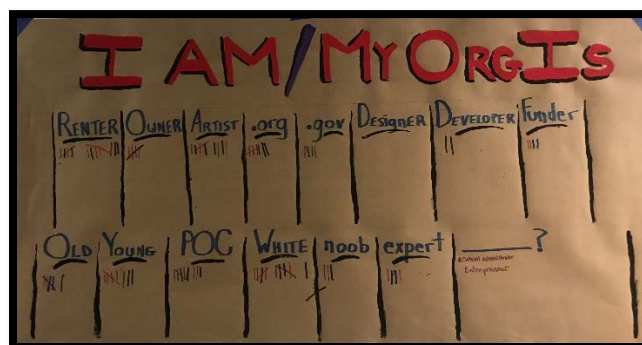 I AM/MY ORG IS
RENTER OWNER ARTIST .org .gov DESIGNER DEVELOPER Funder
OLD YOUNG POC WHITE noob expert ______?
Cultural Administrator
Entrepreneur